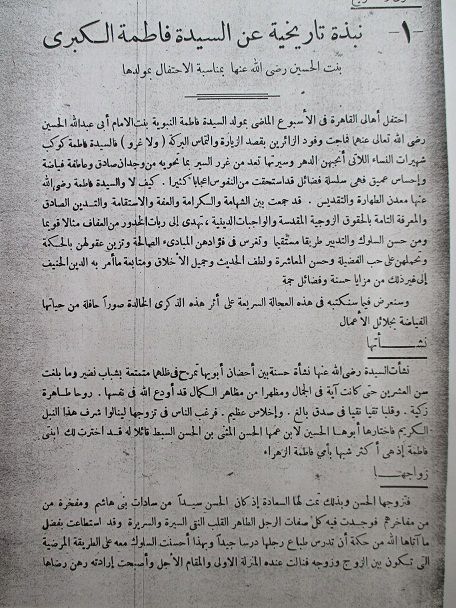 -١- نبذة تاريخية عن السيدة فاطمة الكبرى
بنت الحسين رضى الله عنها بمناسبة الاحتفال بمولدها
احتفل أهالى القاهرة فى الأسبوع الماضى بمولد السيدة فاطمة النبوية بنت الامام أبى عبدالله الحسين
رضى الله تعالى عنهما فجاءت وفود الزائرين بقصد الزيارة والتماس البركة ( ولا غرو ) فالسيدة فاطمة كوكب
شهيرات النساء اللاتى أنجبهن الدهر وسيرتها تعد من غرر السير بما تحويه من وجدان صادق وعاطفة فياضة
وإحساس عميق فهى سلسلة فضائل قد استحقت من النفوس اعجابا كثيرا . كيف لا والسيدة فاطمة رضى الله
عنها معدن الطهارة والتقديس . قد جمعت بين الشهامة والكرامة والعفة والاستقامة والتدين الصادق
والمعرفة التامة بالحقوق الزوجية المقدسة والواجبات الدينية ، تهدى إلى ربات الخدور من العفاف مثالا قويما
ومن حسن السلوك والتدبير طريقا مستقيما وتغرس فى فؤادهن المبادىء الصالحة وتزين عقولهن بالحكمة
وتحملهن على حب الفضيلة وحسن المعاشرة ولطف الحديث وجميل الأخلاق ومتابعة ما أمر به الدين الحنيف
إلى غير ذلك من مزايا حسنة وفضائل جمة
وسنعرض فيما سنكتبه فى هذه العجالة السريعة على أثر هذه الذكرى الخالدة صوراً حافلة من حياتها
الفياضة بجلائل الأعمال
نشأتها
نشأت السيدة رضى الله عنها نشأة حسنة بين أحضان أبويها تمرح فى ظلهما متمتعة بشباب نضير وما بلغت
سن العشرين حتى كانت آية فى الجمال ومظهرا من مظاهر الكمال قد أودع الله فى نفسها . روحا طاهرة
زكية . وقلبا تقيا نقيا فى صدق بالغ . وإخلاص عظيم . فرغب الناس فى تزوجها لينالوا شرف هذا النبل
الكريم فاختارها أبوها الحسين لابن عمها الحسن المثنى بن الحسن السبط قائلا له قد اخترت لك ابنتى
فاطمة إذ هى أكثر شبها بأمى فاطمة الزهراء
زواجها
فتزوجها الحسن وبذلك تمت لها السعادة إذ كان الحسن سيداً من سادات بنى هاشم ومفخرة من
من مفاخرهم فوجدت فيه كل صفات الرجل الطاهر القلب النقى السيرة والسريرة وقد استطاعت بفضل
ما آتاها الله من حكمة أن تدرس طباع رجلها درسا جيداً وبهذا أحسنت السلوك معه على الطريقة المرضية
التى تكون بين الزوج وزوجه فنالت عنده المنزلة الاولى والمقام الأجل وأصبحت إرادته رهن رضاها